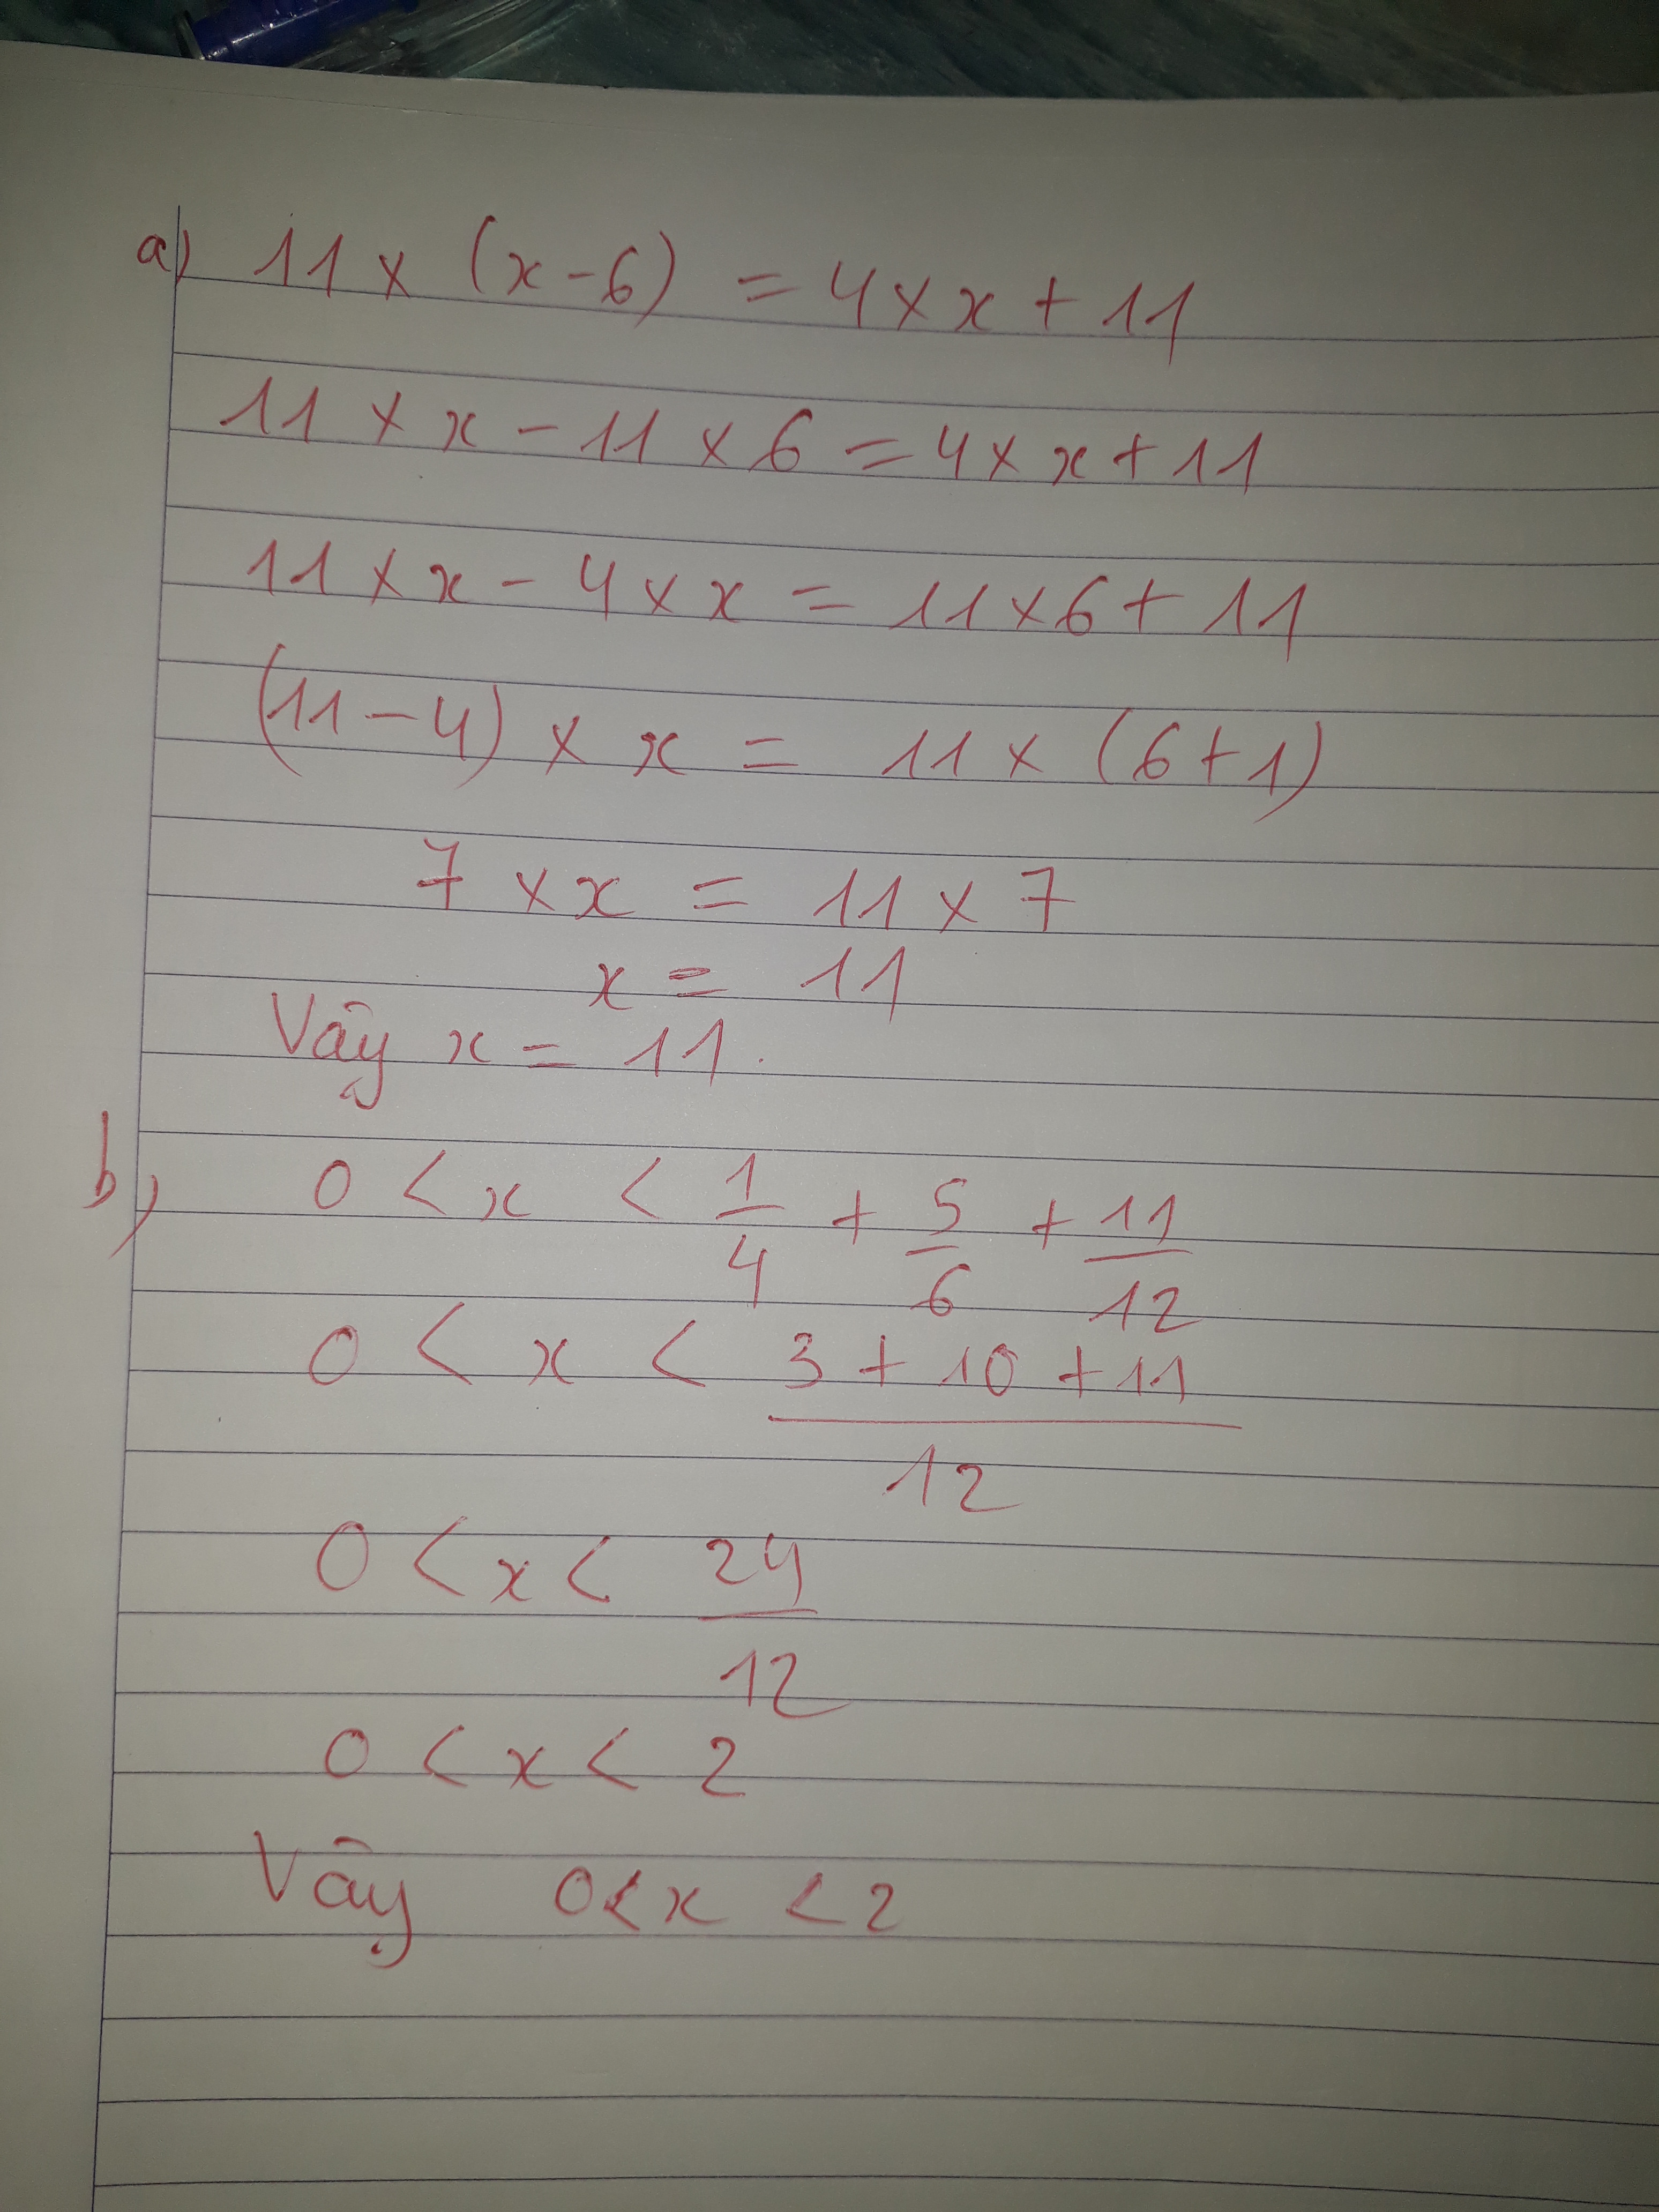 a) 11 × (x - 6) = 4 × x + 11
11 × x - 11 × 6 = 4 × x + 11
11 × x - 4 × x = 11 × 6 + 11
(11 - 4) × x = 11 × (6 + 1)
7 × x = 11 × 7
x = 11
Vậy x = 11.
b) 0 < x < 1/4 + 5/6 + 11/12
0 < x < (3 + 10 + 11)/12
0 < x < 24/12
0 < x < 2
Vậy 0 < x < 2